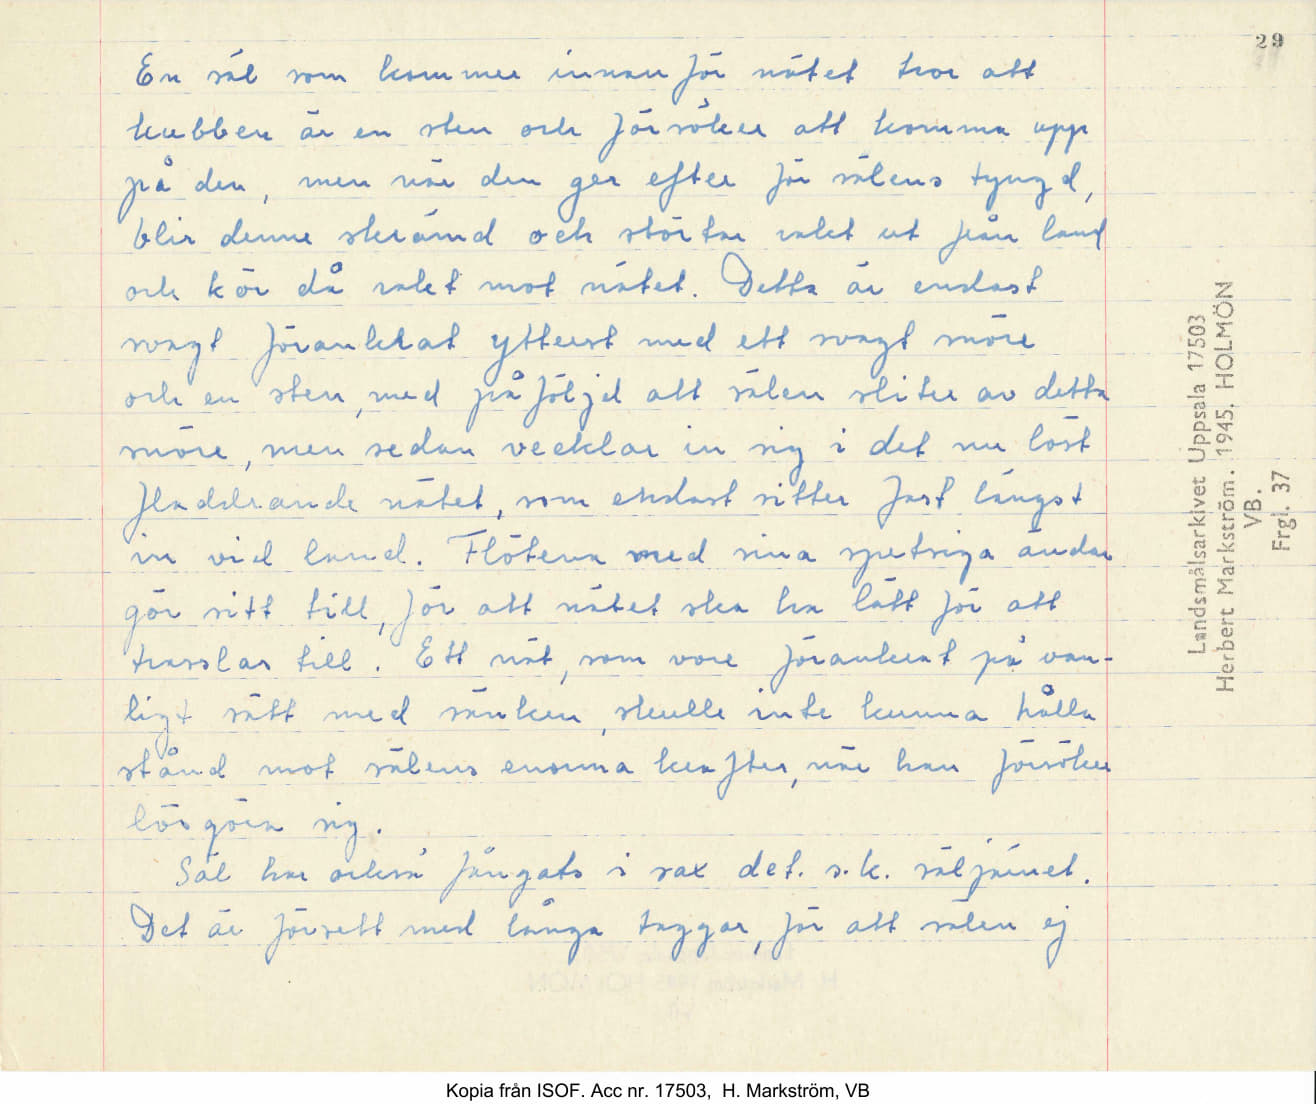 29
En säl som kommer innanför nätet tror att
kubben är en sten och försöker att komma upp
på den, men när den ger efter för sälens tyngd,
blir denne skrämd och störtar rakt ut från land
och kör då rakt mot nätet. Detta är endast
svagt förankrat ytterst med ett svagt snöre
och en sten, med påföljd att sälen sliter av detta
snöre, men sedan vecklar in sig i det nu löst
fladdrande nätet, som endast sitter fast längst
in vid land. Flötena med sina spetsiga ändar
gör sitt till, för att nätet ska ha lätt för att
trassla till. Ett nät, som vore förankrat på van-
ligt sätt med sänken, skulle inte kunna hålla
stånd mot sälens enorma krafter, när han försöker
lösgöra sig.
Säl har också fångats i sax det. s.k. säljärnet.
Det är försett med långa taggar, för att sälen ej
Landsmålsarkivet Uppsala 17503
Herbert Markström. 1945. HOLMÖN
VB.
Frgl. 37
Kopia från ISOF. Acc nr. 17503, H. Markström, VB